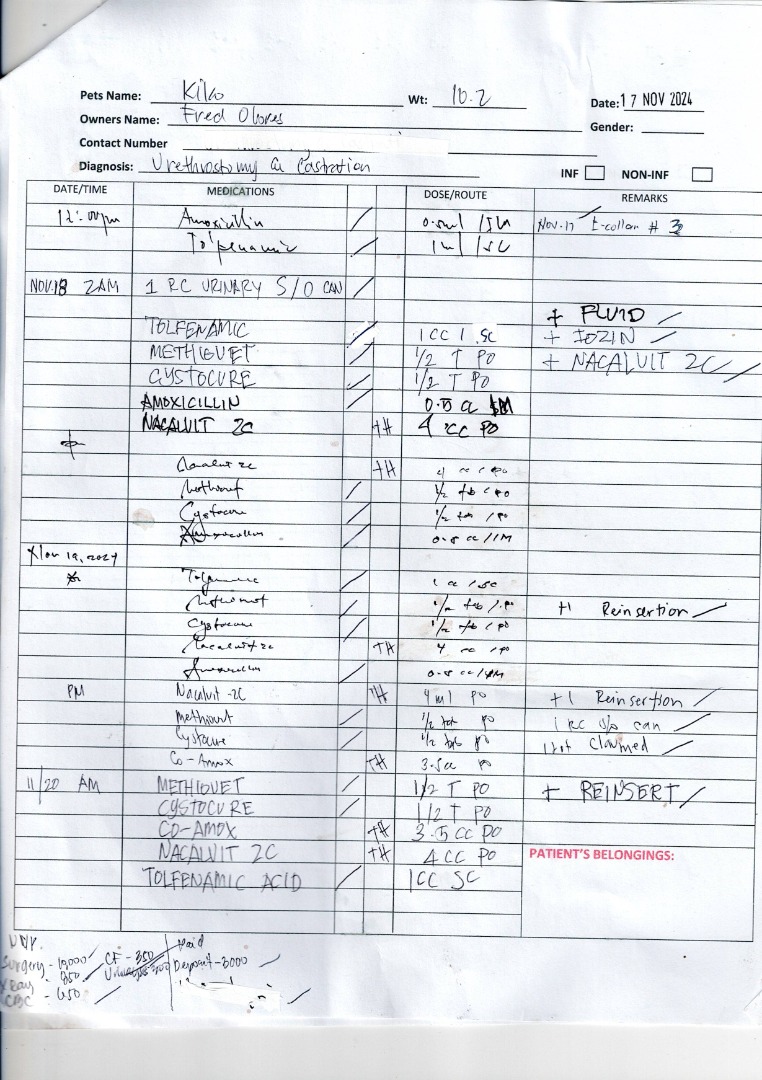 Pets Name: Kiko Wt: 10.2 Date: 17 NOV 2024
Owners Name: Fred Olores Gender:
Contact Number
Diagnosis: Urethrostomy & Castration INF NON-INF
DATE/TIME MEDICATIONS DOSE/ROUTE REMARKS
12:00pm Amoxicillin / 0.5ml /IM Nov. 17 E-collar # 3
Tolfenamic / 1ml /SC
NOV.18 2AM 1 RC URINARY S/O CAN /
+ FLUID
TOLFENAMIC / 1CC / SC + IOZIN
METHIOVET / 1/2 T PO + NACALVIT 2C
CYSTOCURE / 1/2 T PO
AMOXICILLIN / 0.5 CC IM
NACALVIT 2C TH 4 CC PO
Nacalvit 2c TH 4 cc / po
Methiovet / 1/2 tab / po
Cystocure / 1/2 tab / po
Amoxicillin / 0.5 cc / IM
Nov 19, 2024
Tolfenamic / 1 cc / SC
Methiovet / 1/2 tab / po +1 Reinsertion
Cystocure / 1/2 tab / po
Nacalvit 2c TH 4 cc / po
Amoxicillin / 0.5 cc / IM
PM Nacalvit -2C TH 4ml po +1 Reinsertion
Methiovet / 1/2 tab po 1 RC s/o can
Cystocure / 1/2 tab po 1 not Claimed
Co-Amox TH 3.5cc po
11/20 AM METHIOVET / 1/2 T PO + REINSERT
CYSTOCURE / 1/2 T PO
CO-AMOX TH 3.5 CC PO
NACALVIT 2C TH 4 CC PO PATIENT'S BELONGINGS:
TOLFENAMIC ACID / 1CC SC
Paid
Surgery - CF - 350 Deposit - 3000
Xray - 850
CBC - 650